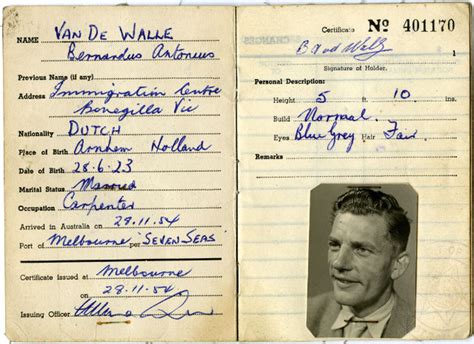 NAME VAN DE WALLE
Bernardus Antonius
Previous Name (if any)
Address Immigration Centre
Bonegilla Vic
Nationality DUTCH
Place of Birth Arnhem Holland
Date of Birth 28.6.23
Marital Status Married
Occupation Carpenter
Arrived in Australia 28.11.54
Port of Melbourne per "SEVEN SEAS"
Certificate issued at Melbourne
28.11.54
Issuing Officer
CHANGES
Certificate No 401170
1
Signature of Holder.
Personal Description:
Height 5 ft. 10 ins.
Build Normal
Eyes Blue Grey Hair Fair
Remarks